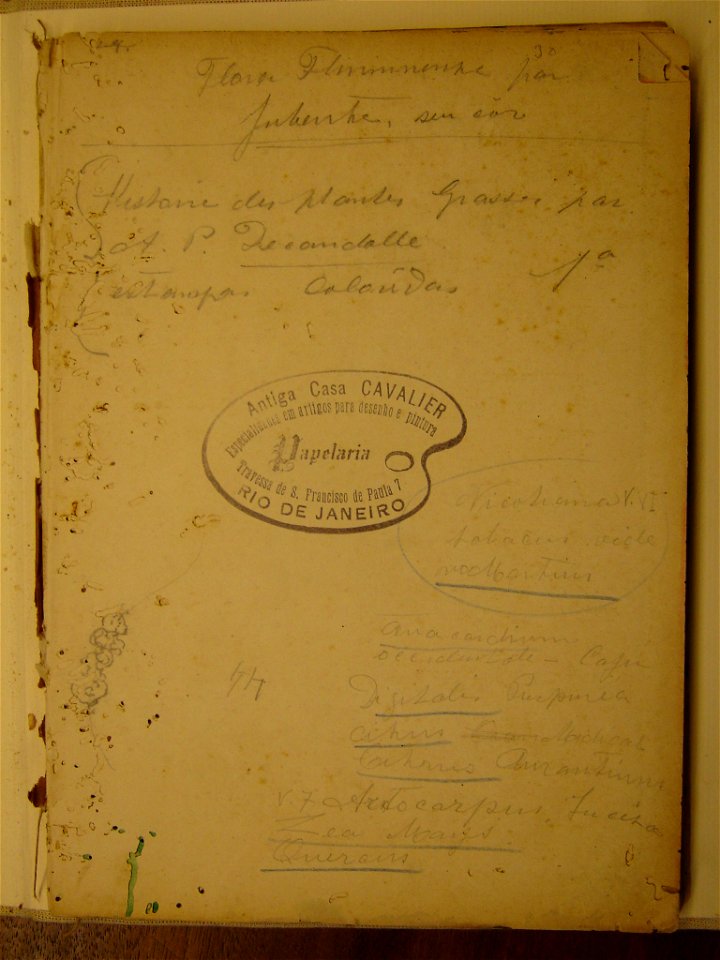 30
Flora Fluminense par
sem côr
Histoire des plantes Grasses par
A. P. Decandolle
estampas Coloridas 1ª
Antiga Casa CAVALIER
Especialidades em artigos para desenho e pintura
Papelaria
Travessa de S. Francisco de Paula 7
RIO DE JANEIRO
Nicotiana V. VI
tabacum vide
Martius
Anacardium
occidentale - Caju
44
Digitalis Purpurea
Citrus
Aurantium
V. 7 Artocarpus Incisa
Zea Mays
Quercus